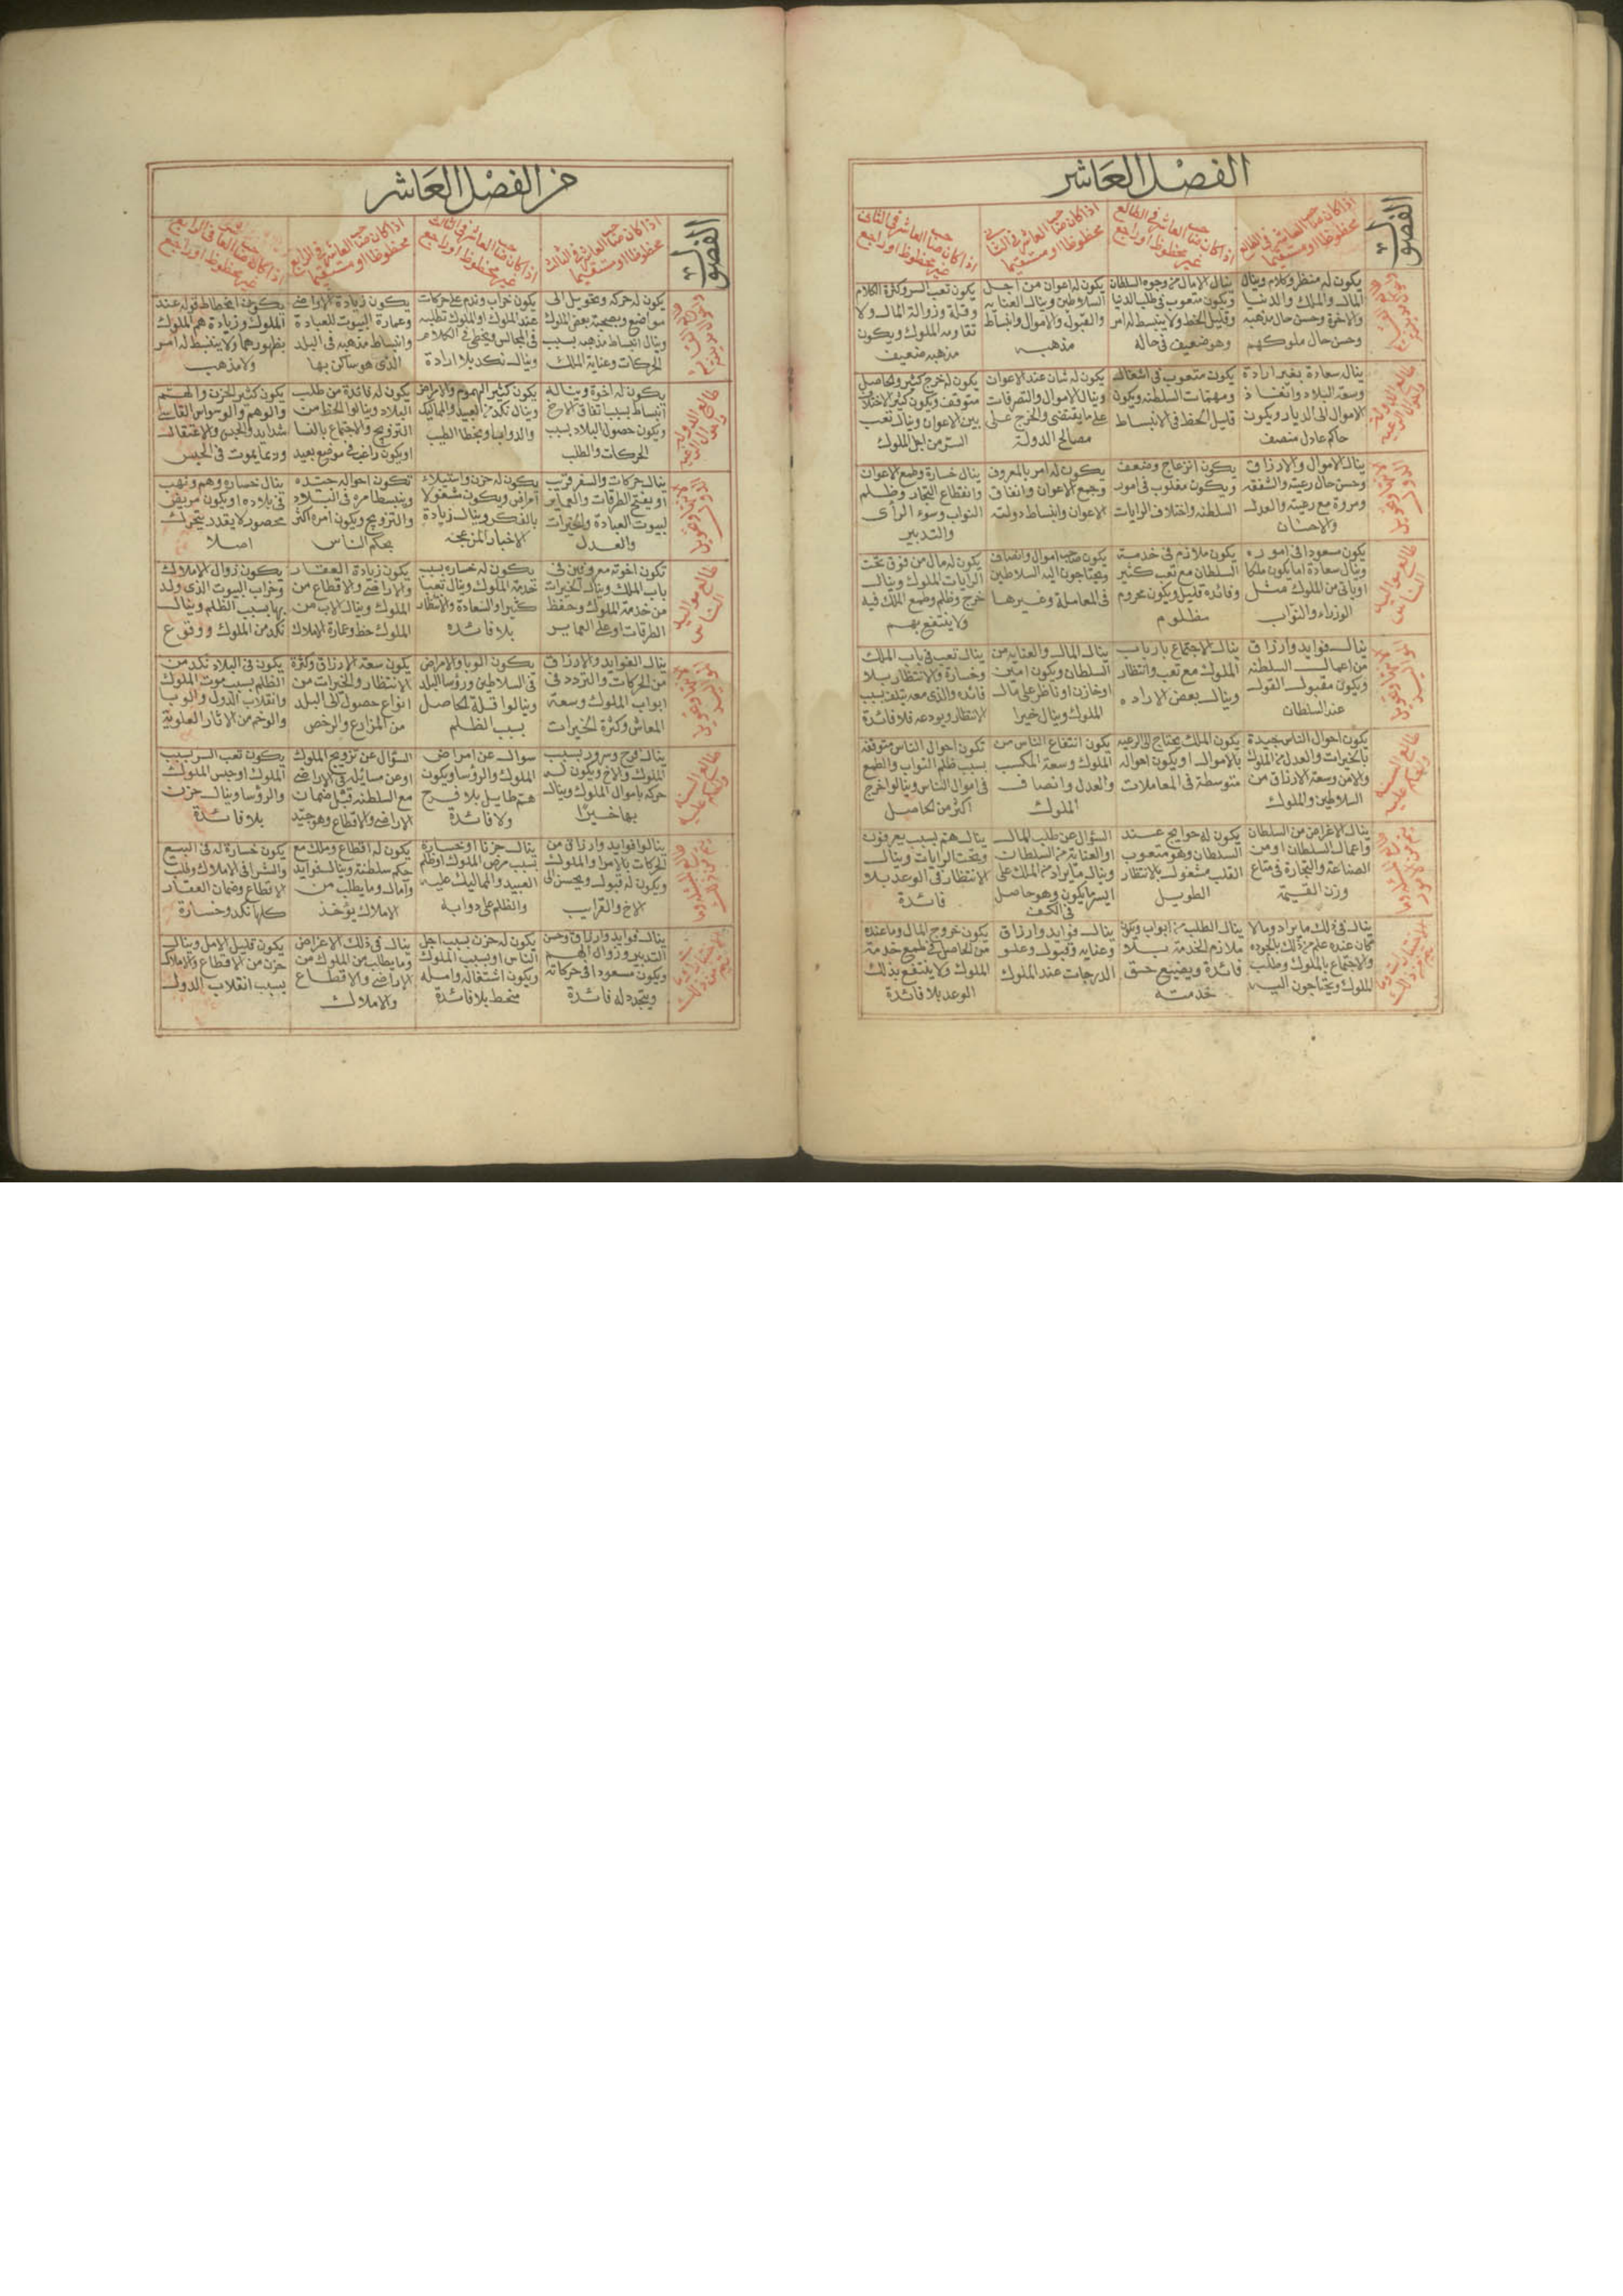 الفصل العاشر
الفصول
اذا كان صاحب العاشر في الطالع
محظوظا او مستقيما
اذا كان صاحب العاشر في الطالع
غير محظوظ او راجع
اذا كان صاحب العاشر في الثاني
محظوظا او مستقيما
اذا كان صاحب العاشر في الثاني
غير محظوظ او راجع
يكون له منظر وكلام وينال
المال والملك والدنيا
والاخرة وحسن حال مذهبه
وحسن حال ملوكهم
ينال الامال من وجوه السلطان
ويكون متعوب في طلب الدنيا
وقليل الحظ ولا ينبسط له امر
وهو ضعيف في حاله
يكون له اعوان من اجل
السلاطين وينال العنايه
والقبول والاموال وانبساط
مذهبه
يكون تعب السر وكثرة الكلام
وقلة وزوالة المال ولا
تقاومه الملوك ويكون
مذهبه ضعيف
طالع الدولة
ينال سعادة بغير ارادة
وسعة البلاد وانفاذ
الاموال الى الديار ويكون
حاكم عادل منصف
يكون متعوب في اشغاله
ومهمات السلطنه ويكون
قليل الحظ في الانبساط
يكون له شان عند الاعوان
وينال الاموال والتصرفات
على ما يقتضي والخرج على
مصالح الدولة
يكون له خرج كثير والحاصل
متوقف ويكون كثير الاختلاف
بين الاعوان وينال تعب
السر من اجل الملوك
ينال الاموال والارزاق
وحسن حال رعيته والشفقه
ومروة مع رعيته والعدل
والاحسان
يكون انزعاج وضعف
ويكون مغلوب في امور
السلطنه واختلاف الرايات
يكون له امر بالمعروف
وجمع الاعوان واتفاق
الاعوان وانبساط دولته
ينال خسارة وطمع الاعوان
وانقطاع التجار وظلم
النواب وسوء الرأى
والتدبير
طالع مواليد
الناس
يكون مسعودا في اموره
وينال سعادة اما يكون ملكا
او ياتي من الملوك مثل
الوزراء والنواب
يكون ملازم في خدمة
السلطان مع تعب كثير
وفائده قليل ويكون محروم
مظلوم
يكون صاحب اموال وانصاف
ويحتاجون اليه السلاطين
في المعاملة وغيرها
يكون له مال من فوق تحت
الرايات الملوك وينال
خرج وظلم وطمع الملك فيه
ولا ينتفع بهم
ينال فوايد وارزاق
من اعمال السلطنه
ويكون مقبول القول
عند السلطان
ينال الاجتماع بارباب
الملوك مع تعب وانتظار
وينال بعض الاراده
ينال المال والعنايه من
السلطان ويكون امين
او خازن او ناظر على مال
الملوك وينال خيرا
ينال تعب في باب الملك
وخسارة والانتظار بلا
فائده والذي معه يتلف بسبب
الانتظار ويودعه فلا فائدة
طالع السنة
يكون احوال الناس جيدة
بالخيرات والعدل من الملوك
والامن وسعة الارزاق من
السلاطين والملوك
يكون الملك يحتاج الى الرعيه
بالاموال او يكون احواله
متوسطة في المعاملات
يكون انتفاع الناس من
الملوك وسعة المكسب
والعدل وانصاف
الملوك
تكون احوال الناس متوقفه
بسبب ظلم النواب والطمع
في اموال الناس وينالوا خرج
اكثر من الحاصل
ينال الاغراض من السلطان
واعمال السلطان او من
الصناعة والتجارة في متاع
وزن القيمة
يكون له حوايج عند
السلطان وهو متعوب
القلب مشغول بالانتظار
الطويل
السؤال عن طلب المال
او العناية من السلطان
وينال ما يراد من الملك على
ايسر ما يكون وهو حاصل
في الكف
ينال هم بسبب يعرفون
وتحت الرايات وينال
الانتظار في الوعد بلا
فائدة
ينال في ذلك ما يراد وما لا
كان عنده علم من ذلك بالجوده
والاجتماع بالملوك وطلب
الملوك ويحتاجون اليه
ينال الطلب من ابواب ويكون
ملازم الخدمة بلا
فائدة ويضيع حق
خدمته
ينال فوايد وارزاق
وعنايه وقبول وعلو
الدرجات عند الملوك
يكون خروج المال وما عنده
من الحاصل في طمع خدمة
الملوك ولا ينتفع بذلك
الوعد بلا فائدة
من الفصل العاشر
الفصول
اذا كان صاحب العاشر في الثالث
محظوظا او مستقيما
اذا كان صاحب العاشر في الثالث
غير محظوظ او راجع
اذا كان صاحب العاشر في الرابع
محظوظا او مستقيما
اذا كان صاحب العاشر في الرابع
غير محظوظ او راجع
يكون له حركه وتحويل الى
مواضع وبصحبة بعض الملوك
وينال انبساط مذهبه بسبب
الحركات وعناية الملك
يكون خراب وندم على حركات
عند الملوك او الملوك تطلبه
في المجالس ويخطي في الكلام
وينال نكد بلا ارادة
يكون زيادة الاراضي
وعمارة البيوت للعبادة
وانبساط مذهبه في البلد
الذي هو ساكن بها
يكون انحطاط قوله عند
الملوك وزيادة هم الملوك
بظهورهما ولا ينبسط له امر
ولا مذهب
طالع الدولة
يكون له اخوة ويناله
انبساط بسبب اتفاق الاخ
ويكون حصول البلاد بسبب
الحركات والطلب
يكون كثير الهموم والامراض
وينال نكد من العبيد والمماليك
والدواب او يخطا الطيب
يكون له فائدة من طلب
البلاد وينالوا الحظ من
التزويج والاجتماع بالنسا
او يكون راغب في موضع بعيد
يكون كثير الحزن والهم
والوهم والوسواس القاسي
شدايد والحبس والاعتقال
وربما يموت في الحبس
ينال حركات والسفر قريب
او يفتح الطرقات والعماير
لبيوت العبادة والخيرات
والعدل
يكون له حزن واستيلاء
امراض ويكون مشغولا
بالفكر وينال زيادة
الاخبار المزعجة
تكون احواله جيده
وينبسط امره في البلاد
والتزويج ويكون امره اكثر
بحكم الناس
ينال خساره وهم ونهب
في بلاده او يكون مريض
محصور لا يقدر يتحرك
اصلا
طالع مواليد
الناس
تكون اخوته معروفين في
باب الملك وينال الخيرات
من خدمة الملوك وحفظ
الطرقات او على العماير
يكون له خساره بسبب
خدمة الملوك وينال تعبا
كثيرا والسعادة والانتظار
بلا فائدة
يكون زيادة العقار
والاراضي والاقطاع من
الملوك وينال الاب من
الملوك حظ وعمارة الاملاك
يكون زوال الاملاك
وخراب البيوت الذي ولد
بها بسبب الظلم وينال
نكد من الملوك ووقوع
ينال الفوايد والارزاق
من الحركات والتردد في
ابواب الملوك وسعة
المعاش وكثرة الخيرات
يكون الوبا والامراض
في السلاطين ورؤسا البلد
وينالوا قلة الحاصل
بسبب الظلم
يكون سعة الارزاق وكثرة
الانتظار والخيرات من
انواع حصول الى البلد
من المزارع والرخص
يكون في البلاد نكد من
الظلم بسبب موت الملوك
وانقلاب الدول والوبا
والوخم من الاثار العلوية
طالع السنة
ينال فرح وسرور بسبب
الملوك والاخ ويكون له
حركه باموال الملوك وينال
بها خيرا
سوال عن امراض
الملوك والرؤسا ويكون
هم طايل بلا فرح
ولا فائدة
السؤال عن تزويج الملوك
او عن مسائله في الاراضي
مع السلطنه قبل ضمان
الاراضي والاقطاع وهو جيد
يكون تعب السر بسبب
الملوك او حبس الملوك
والرؤسا وينال حزن
بلا فائدة
ينالوا فوايد وارزاق من
الحركات بالامرا والملوك
ويكون له قبول ويحسن الى
الاخ والقرايب
ينال حزنا او خسارة
بسبب مرض الملوك او ظلم
العبيد والمماليك عليه
والظلم على دوابه
يكون له اقطاع وملك مع
حكم سلطنة وينال فوايد
وآمال وما يطلب من
الاملاك يؤخذ
يكون خسارة له في البيع
والشرا في الاملاك وطلب
الاقطاع وضمان العقار
كلها نكد وخسارة
ينال فوايد وارزاق وحسن
التدبير وزوال الهم
ويكون مسعودا في حركاته
ويتجدد له فائدة
يكون له حزن بسبب اجل
الناس او بسبب الملوك
ويكون اشتغاله وامله
منحط بلا فائدة
ينال في ذلك الاغراض
وما يطلب من الملوك من
الاراضي والاقطاع
والاملاك
يكون قليل الامل وينال
حزن من الاقطاع والاملاك
بسبب انقلاب الدول